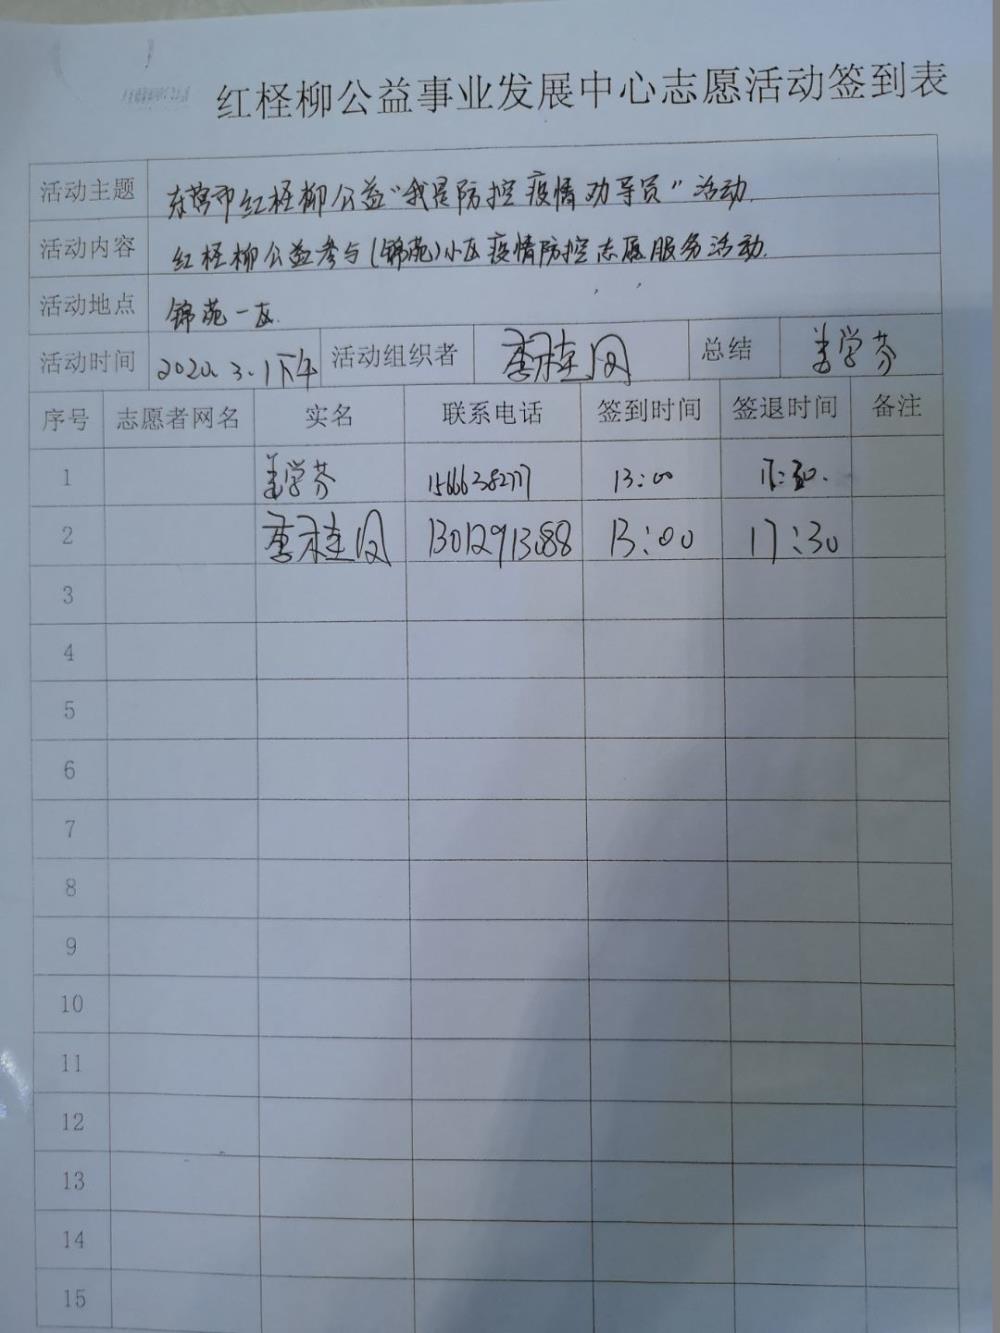 红柽柳公益事业发展中心志愿活动签到表
活动主题 东营市红柽柳公益“我是防控疫情劝导员”活动.
活动内容 红柽柳公益参与(锦苑)小区疫情防控志愿服务活动.
活动地点 锦苑一区.
活动时间 2020.3.1下午 活动组织者 李桂凤 总结 姜学芬
序号 志愿者网名 实名 联系电话 签到时间 签退时间 备注
1 姜学芬 13:00
2 李桂凤 13012913088 13:00 17:30
3
4
5
6
7
8
9
10
11
12
13
14
15